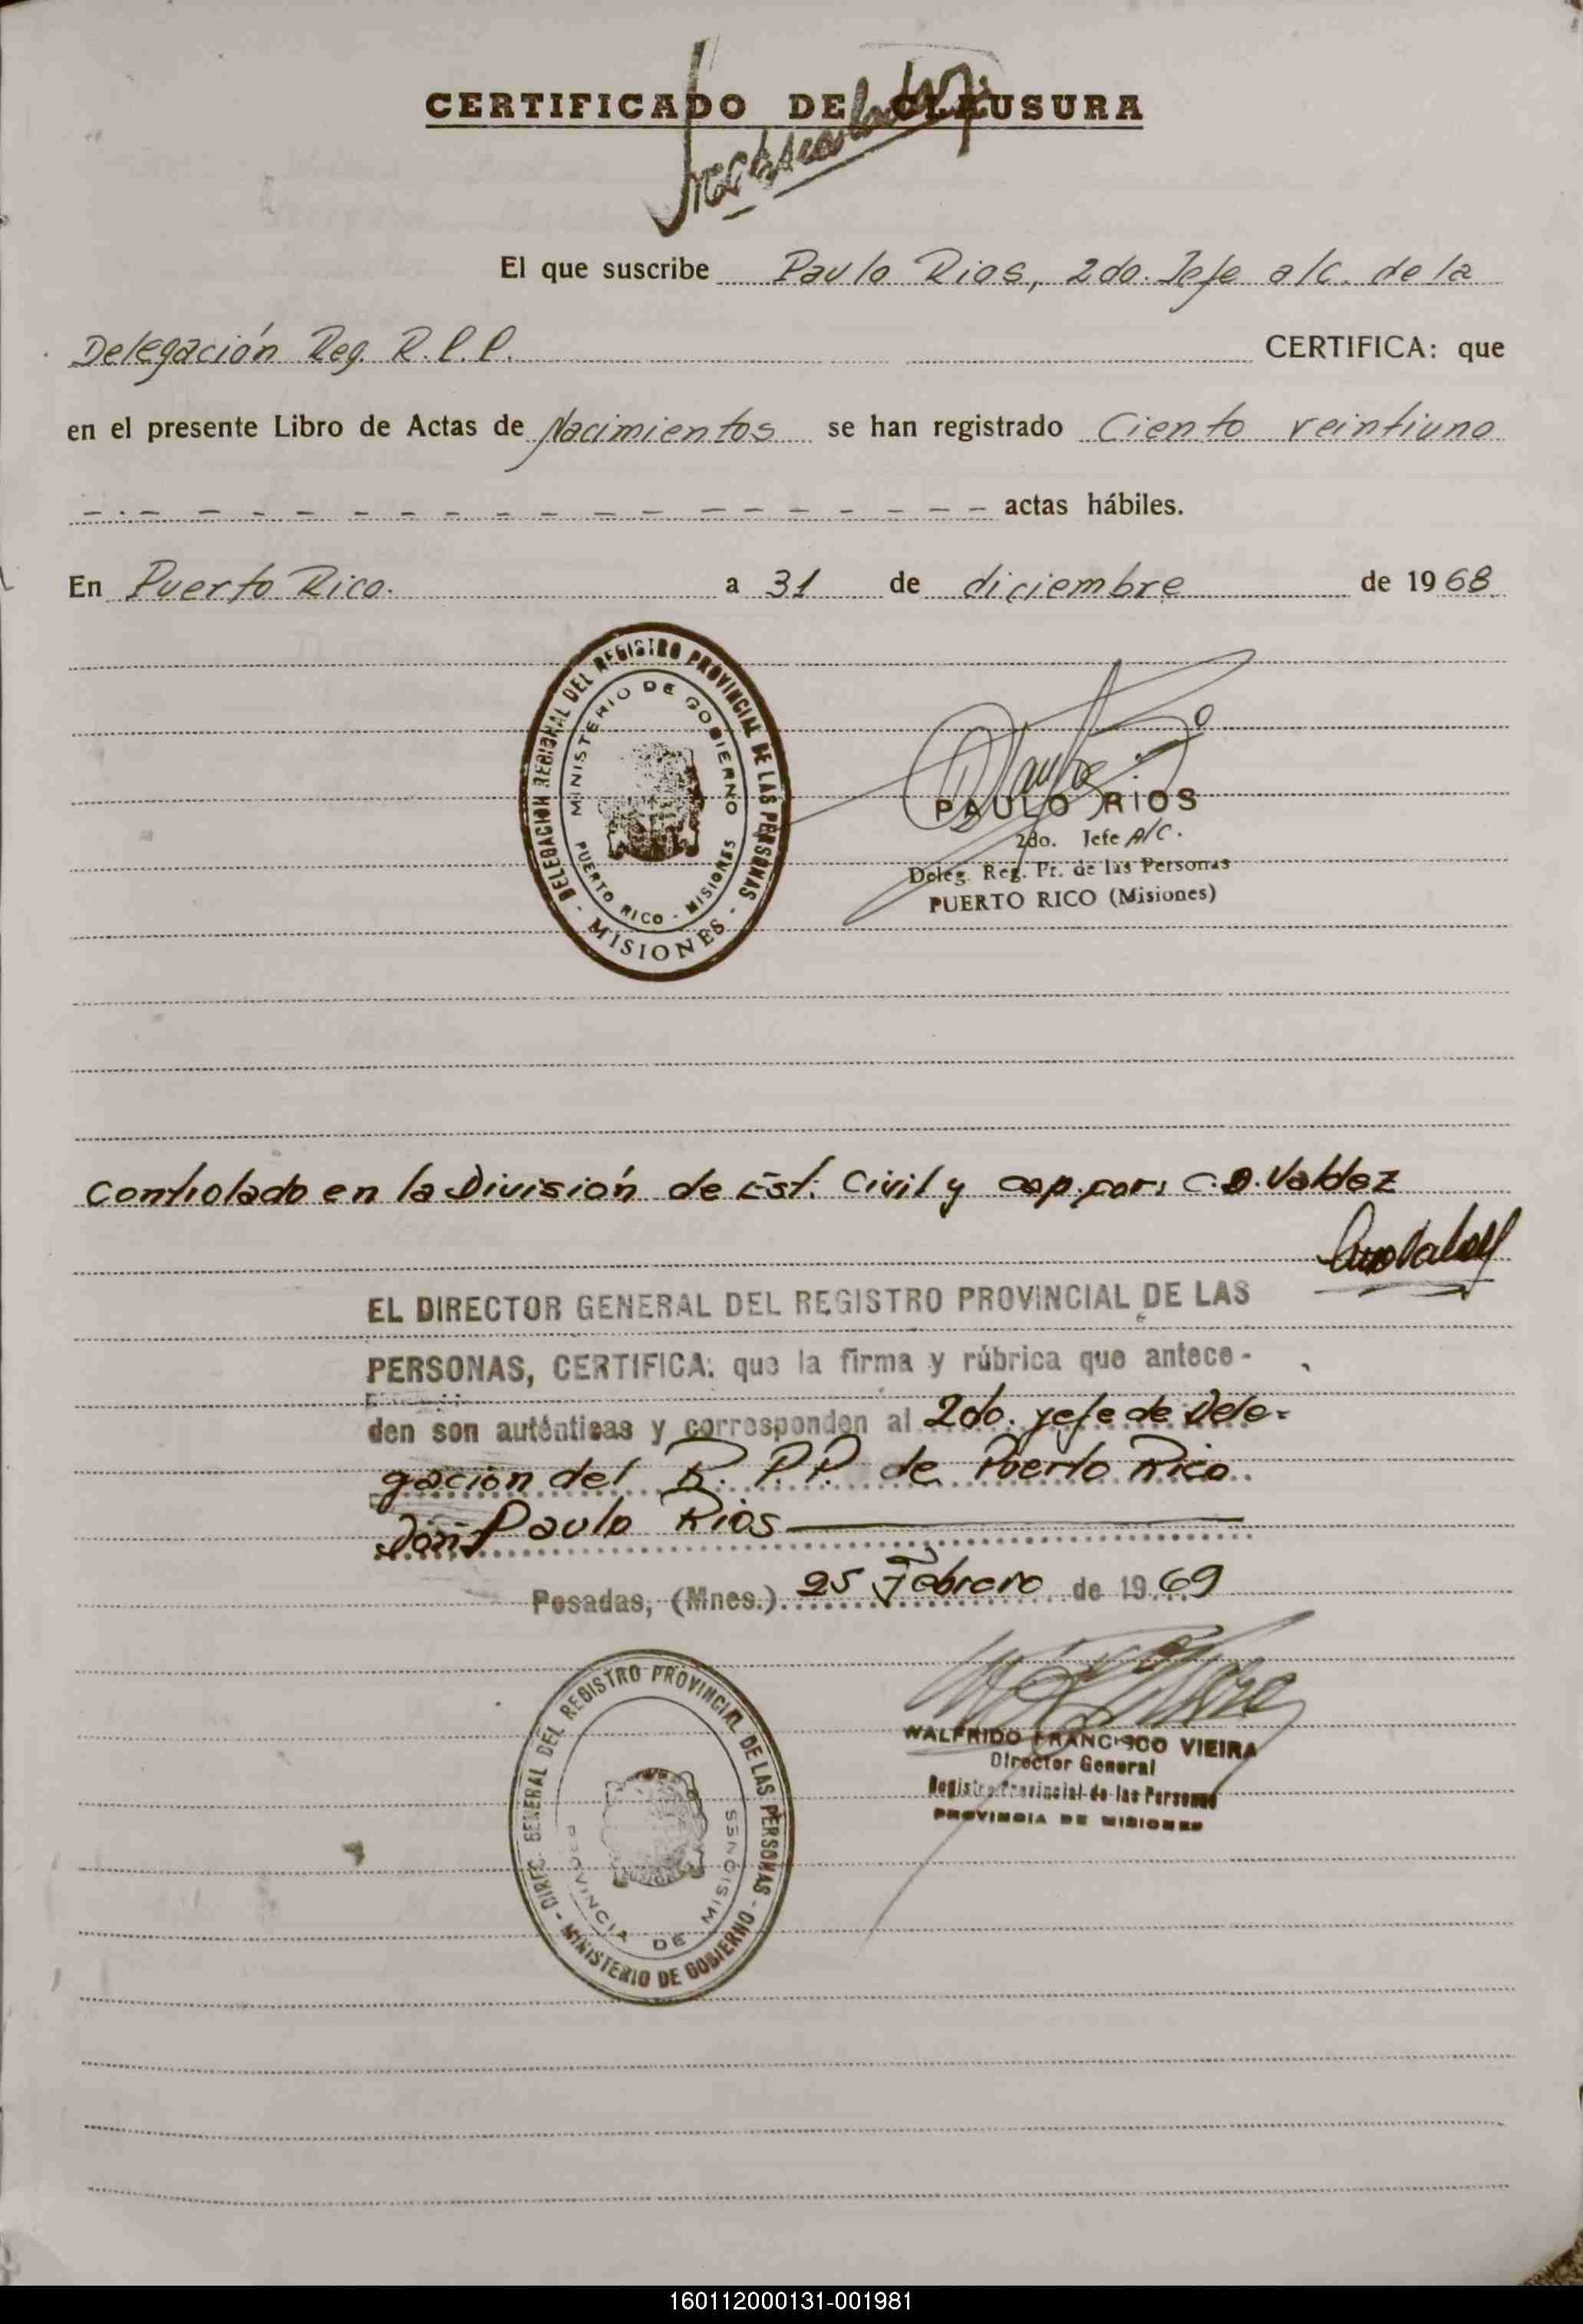 CERTIFICADO DE CLAUSURA
El que suscribe Paulo Rios, 2do. Jefe a/c. de la
Delegación Reg. R.P.P. CERTIFICA: que
en el presente Libro de Actas de Nacimientos se han registrado Ciento veintiuno
actas hábiles.
En Puerto Rico. a 31 de diciembre de 1968
DELEGACION REGIONAL DEL REGISTRO PROVINCIAL DE LAS PERSONAS - MISIONES -
MINISTERIO DE GOBIERNO
PUERTO RICO - MISIONES
PAULO RIOS
2do. Jefe A/C.
Deleg. Reg. Pr. de las Personas
PUERTO RICO (Misiones)
Controlado en la División de Est. Civil y Cap. por: C.D. Valdez
EL DIRECTOR GENERAL DEL REGISTRO PROVINCIAL DE LAS
PERSONAS, CERTIFICA: que la firma y rúbrica que antece-
den son auténticas y corresponden al 2do. jefe de Dele-
gación del R. P.P. de Puerto Rico
Don Paulo Rios
Posadas, (Mnes.) 25 Febrero de 1969
DIREC. GENERAL DEL REGISTRO PROVINCIAL DE LAS PERSONAS - MINISTERIO DE GOBIERNO -
PROVINCIA DE MISIONES
WALFRIDO FRANCISCO VIEIRA
Director General
Registro Provincial de las Personas
PROVINCIA DE MISIONES
160112000131-001981